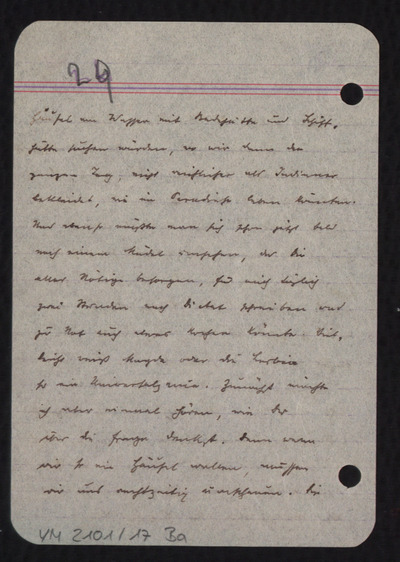 29
Häusel am Wasser mit Badehütte und Schiff,
hütte suchen würden, wo wir dann den
ganzen Tag, nicht reichlicher als Indianer
bekleidet, wie im Paradiese leben könnten.
Nur etwas müßte man sich schon jetzt bald
nach einem Mädel umsehen, das Dir
alles Nötige besorgen, für mich täglich
zwei Stunden nach Diktat schreiben und
zur Not auch etwas kochen könnte. Viel,
leicht weiß oder die
so ein Universalgenie. Zunächst möchte
ich aber einmal hören, wie Du
über die Frage denkst. Denn wenn
wir so ein Häusel wollen, müssen
wir uns rechtzeitig umschauen. Die
YM 2101/17 Ba